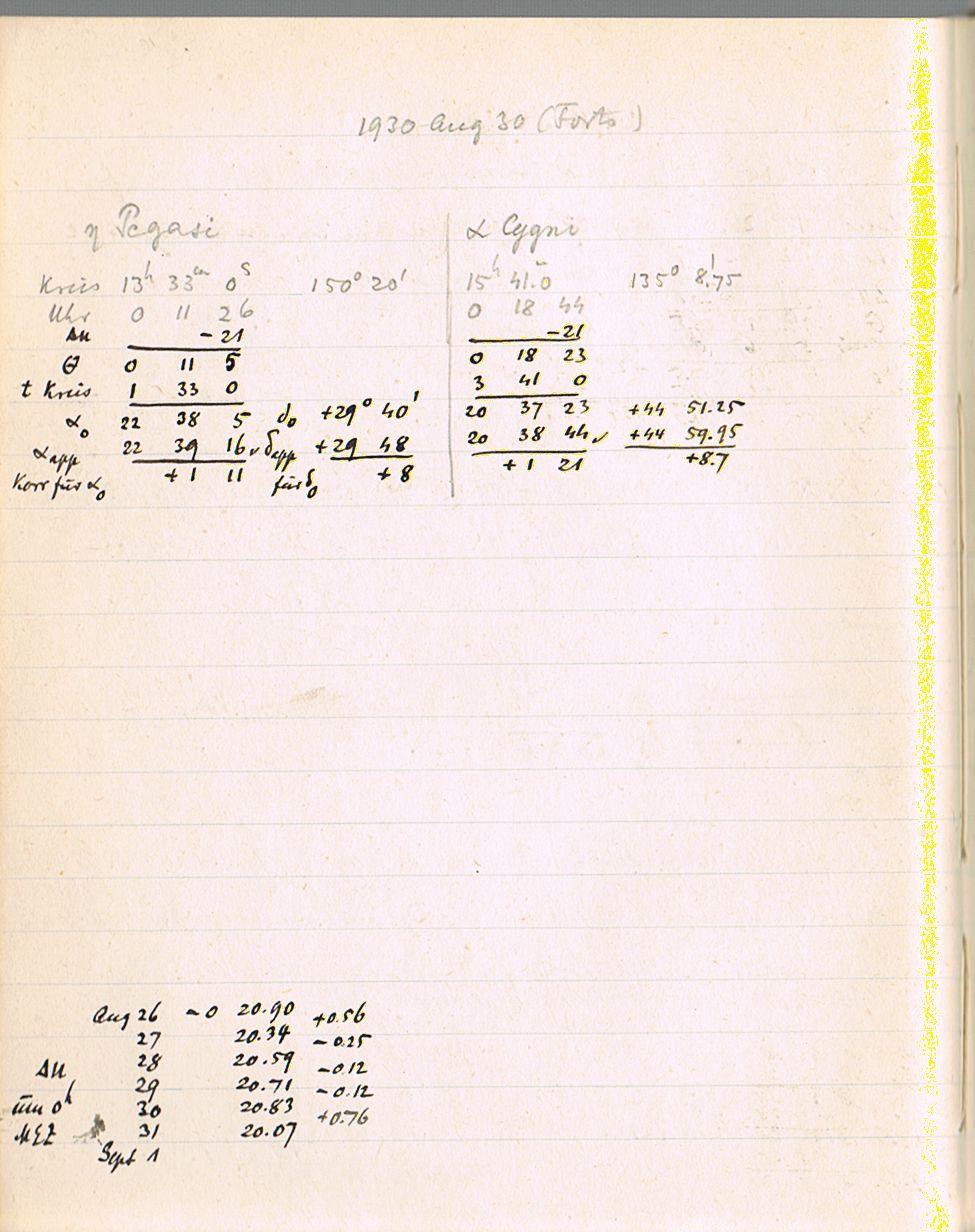 1930 Aug 30 (Forts)
η Pegasi α Cygni
Kreis 13h 33m 0s 150° 20' 15h 41.0 135° 8!75
Uhr 0 11 26 0 18 44
Δu - 21 -21
Θ 0 11 5 0 18 23
t Kreis 1 33 0 3 41 0
α0 22 38 5 δ0 +29° 40' 20 37 23 +44 51.25
αapp 22 39 16 ✓ δapp +29 48 20 38 44 ✓ +44 59.95
Korr für α0 +1 11 für δ0 +8 +1 21 +8.7
Aug 26 -0 20.90 +0.56
27 20.34 -0.25
Δu 28 20.59 -0.12
29 20.71 -0.12
um 0h 30 20.83 +0.76
MEZ 31 20.07
Sept 1